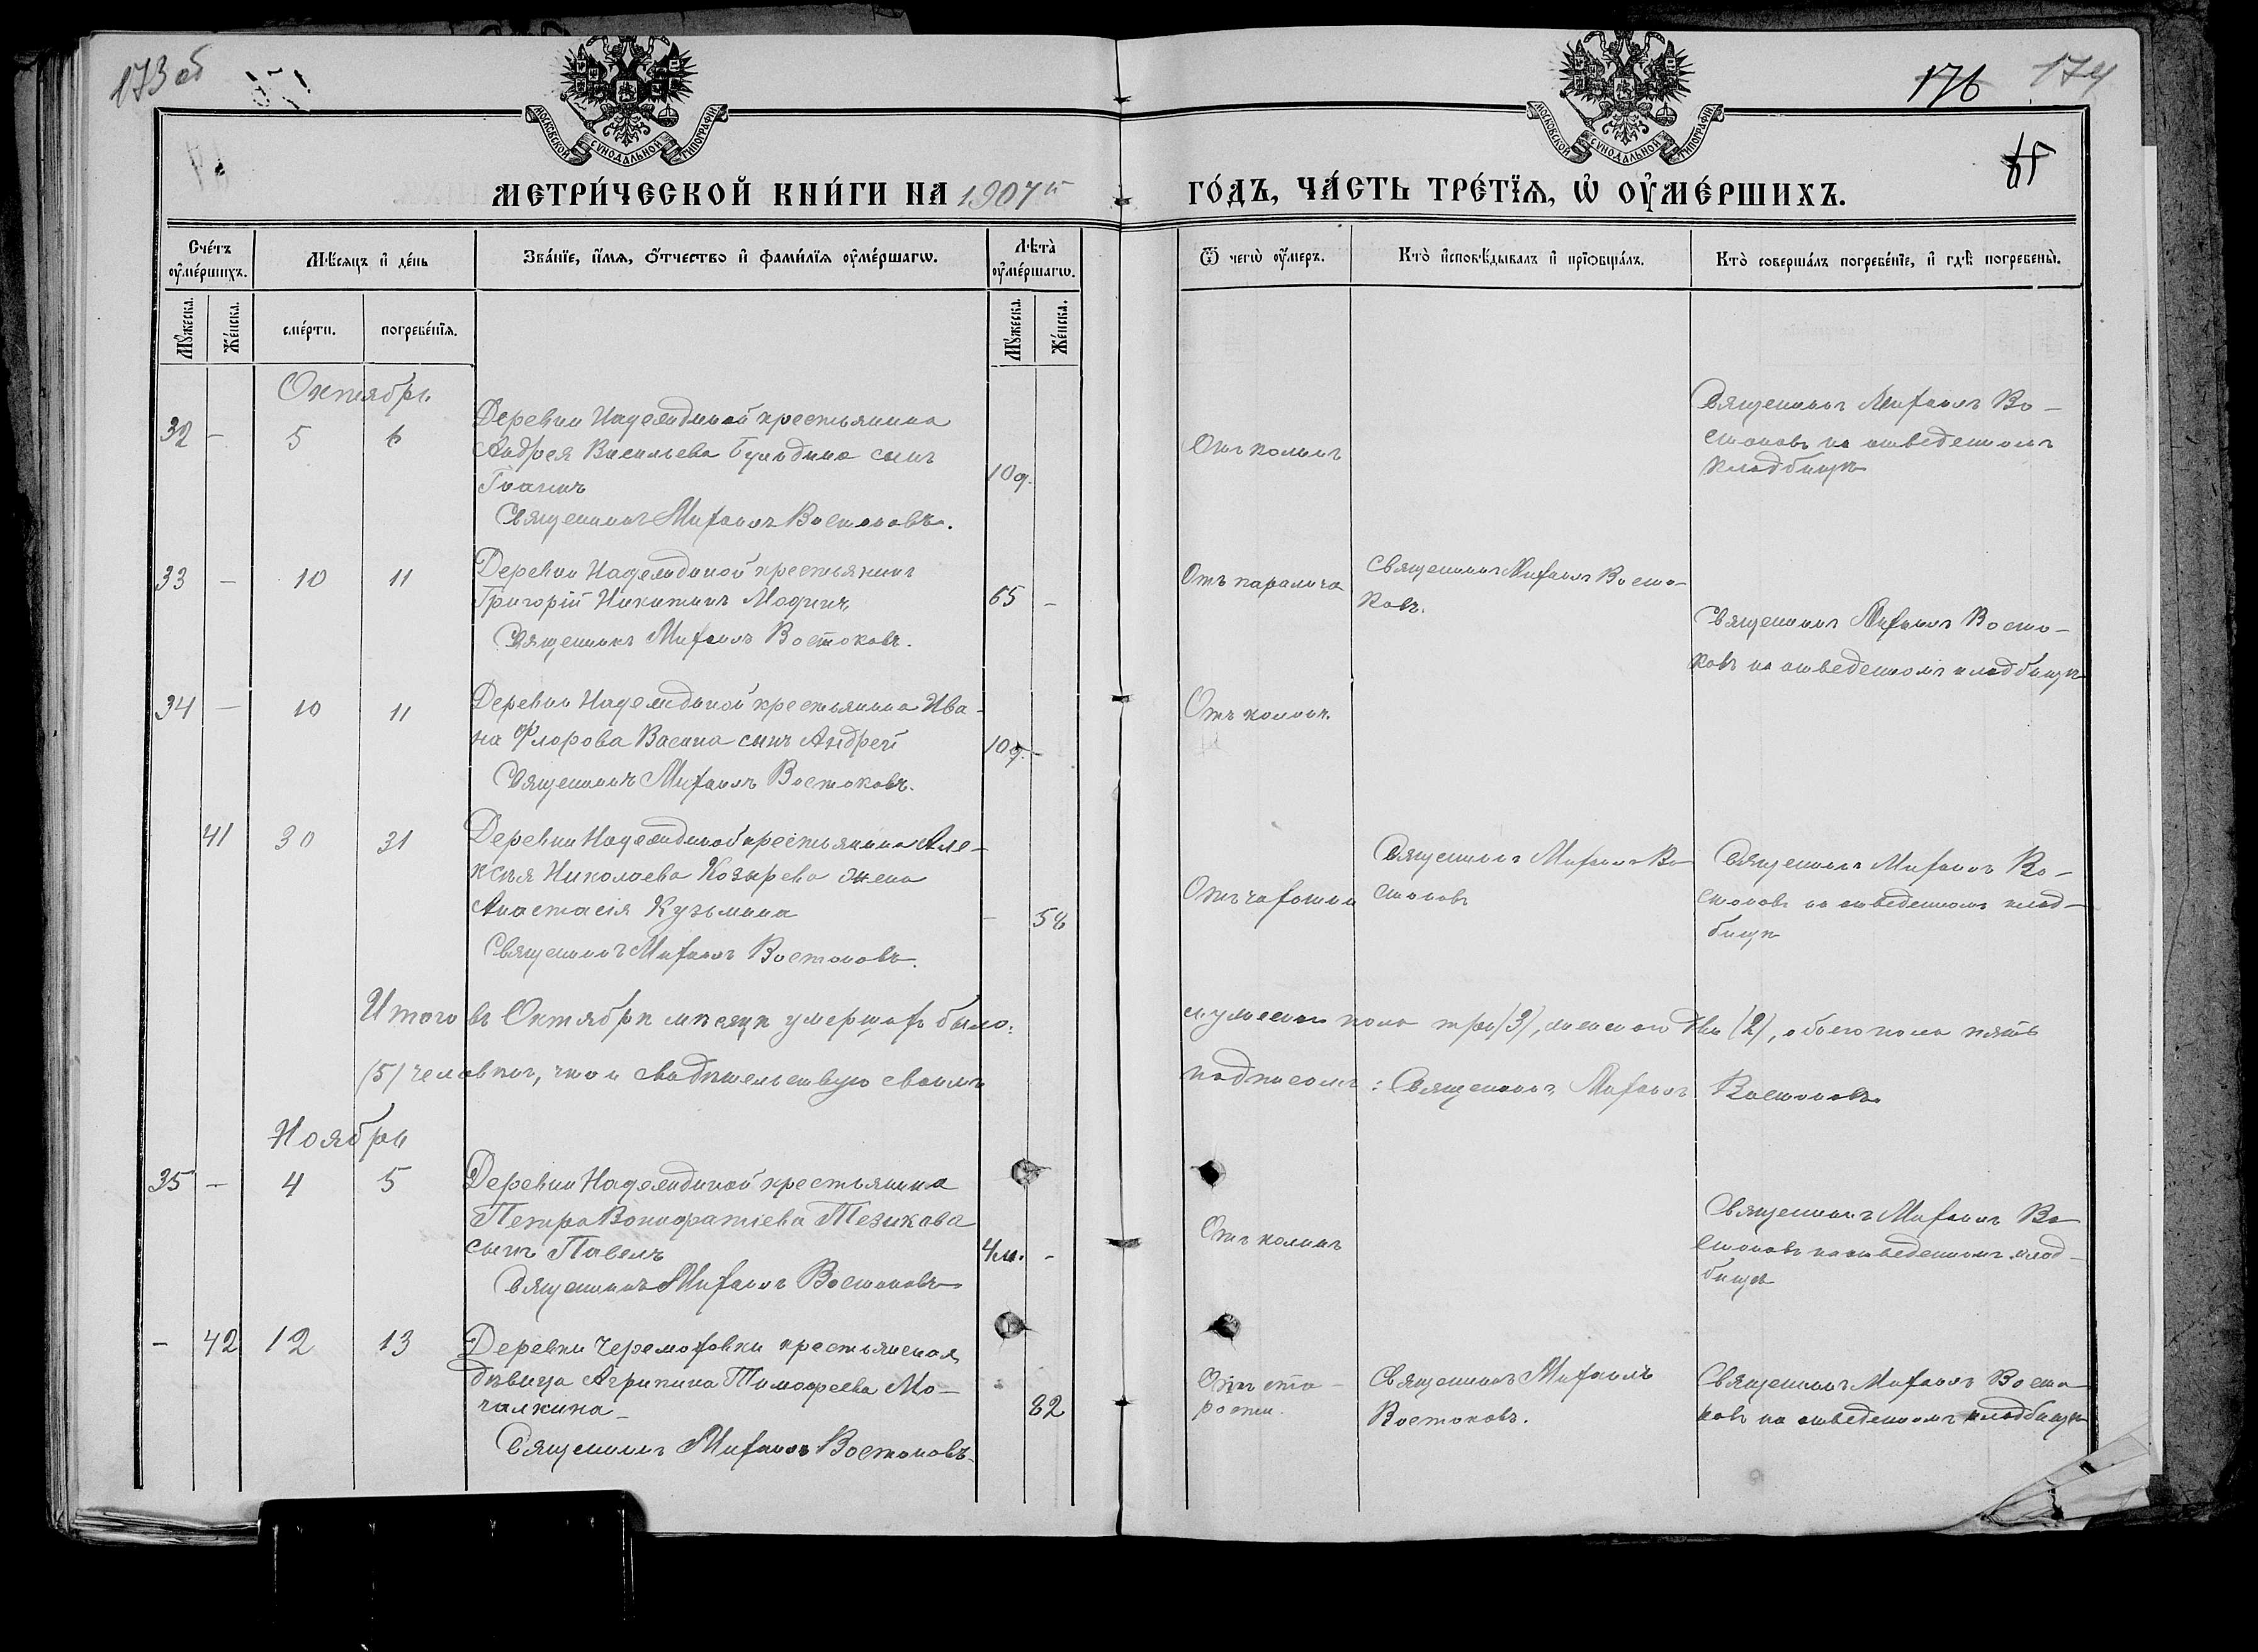 173 об
176 174
МОСКОВСКОЙ СѴНОДАЛЬНОЙ ТИПОГРАФІИ
МОСКОВСКОЙ СѴНОДАЛЬНОЙ ТИПОГРАФІИ
МЕТРИ́ЧЕСКОЙ КНИ́ГИ НА 1907й
ГО́ДЪ, ЧА́СТЬ ТРЕ́ТЇѦ, Ѡ҆ ОУ҆МЕ́РШИХЪ.
Сче́тъ оу҆ме́ршихъ.
Мѣ́сяцъ и҆ де́нь
Зва́нїе, и҆́мѧ, ѻ҆́тчество и҆ фами́лїѧ оу҆ме́ршагѡ.
Лѣ́та̀ оу҆ме́ршагѡ.
Ѿ чегѡ̀ оу҆́меръ.
Кто̀ и҆сповѣ́дывалъ и҆ прїѻбща́лъ.
Кто̀ соверша́лъ погребе́нїе, и҆ гдѣ̀ погребены̀.
Мꙋ́жеска.
Же́нска.
сме́рти.
погребе́нїѧ.
Мꙋ́жеска.
Же́нска.
Октябрь
32 - 5 6
Деревни Надеждиной крестьянина
Андрея Васильева сынъ
Іоаннъ
10д.
Священникъ Михаилъ Востоковъ.
Священникъ Михаилъ Во-
стоковъ на отведенномъ
кладбищѣ
33 - 10 11
Деревни Надеждиной крестьянинъ
Григорій Никитинъ
65 -
Священникъ Михаилъ Востоковъ.
Отъ паралича
Священникъ Михаилъ Восто-
ковъ.
Священникъ Михаилъ Восто-
ковъ на отведенномъ кладбищѣ
34 - 10 11
Деревни Надеждиной крестьянина Ива-
на Флорова Васина сынъ Андрей
10д. -
Священникъ Михаилъ Востоковъ.
41 30 31
Деревни Надеждиной крестьянина Але-
ксѣя Николаева Козырева жена
Анастасія Кузьмина
- 58
Священникъ Михаилъ Востоковъ.
Отъ чахотки
Священникъ Михаилъ Во-
стоковъ
Священникъ Михаилъ Во-
стоковъ на отведенномъ клад-
бищѣ
Итого въ Октябрѣ мѣсяцѣ умершихъ было: мужеска пола три (3), женска двѣ (2), обоего пола пять
(5) человѣкъ, что и свидѣтельствую своимъ подписомъ: Священникъ Михаилъ Востоковъ.
Ноябрь
35 - 4 5
Деревни Надеждиной крестьянина
Петра Тезикова
сынъ Павелъ
4м. -
Священникъ Михаилъ Востоковъ
Священникъ Михаилъ Во-
стоковъ на отведенномъ клад-
бищѣ
- 42 12 13
Деревни Черемоховки крестьянская
дѣвица Агрипина Тимофеева Мо-
чалкина
82
Священникъ Михаилъ Востоковъ
Отъ ста-
рости.
Священникъ Михаилъ
Востоковъ.
Священникъ Михаилъ Восто-
ковъ на отведенномъ кладбищѣ